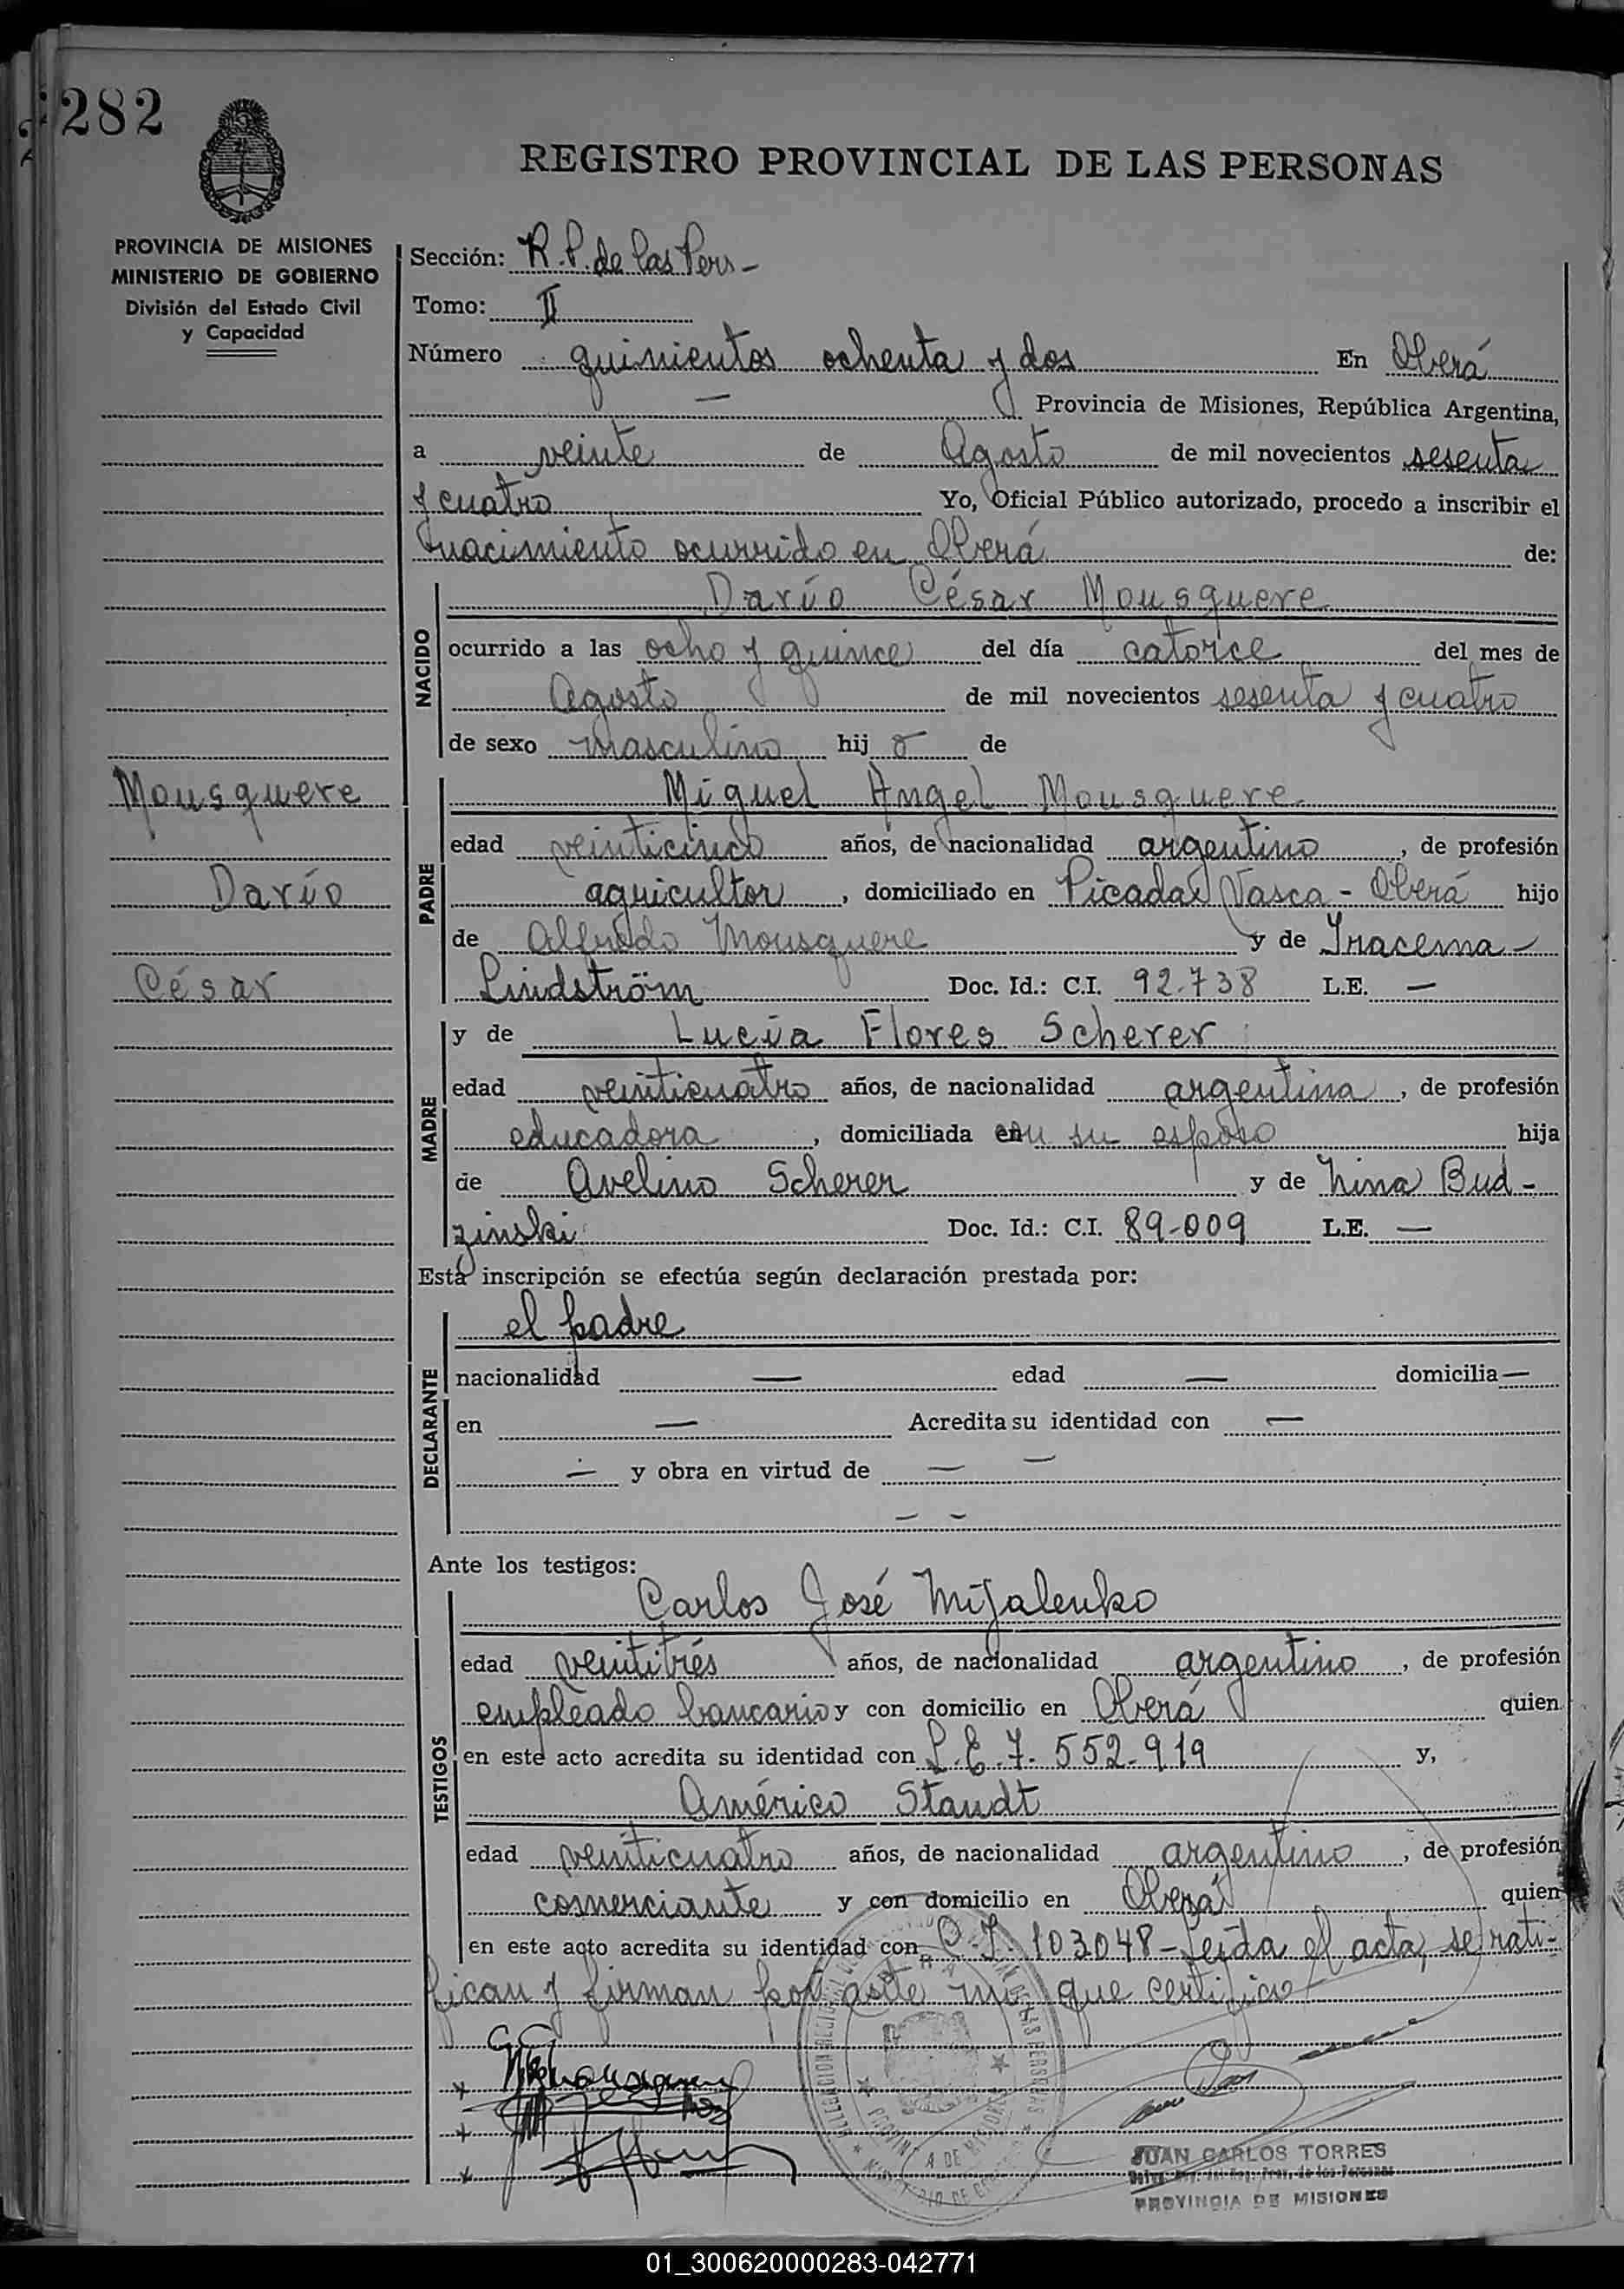 282
REGISTRO PROVINCIAL DE LAS PERSONAS
PROVINCIA DE MISIONES
MINISTERIO DE GOBIERNO
División del Estado Civil
y Capacidad
Sección: R.P. de las Pers-
Tomo: II
Número quinientos ochenta y dos En Oberá
— Provincia de Misiones, República Argentina,
a veinte de Agosto de mil novecientos sesenta
y cuatro Yo, Oficial Público autorizado, procedo a inscribir el
nacimiento ocurrido en Oberá de:
NACIDO
Darío César Mousquere
ocurrido a las ocho y quince del día catorce del mes de
Agosto de mil novecientos sesenta y cuatro
de sexo masculino hij o de
Mousquere
Darío
César
PADRE
Miguel Angel Mousquere
edad veinticinco años, de nacionalidad argentino, de profesión
agricultor, domiciliado en Picada Vasca - Oberá hijo
de Alfredo Mousquere y de Iracema-
Lindström Doc. Id.: C.I. 92.738 L.E. —
MADRE
y de Lucía Flores Scherer
edad veinticuatro años, de nacionalidad argentina, de profesión
educadora, domiciliada con su esposo hija
de Avelino Scherer y de Nina Bud-
zinski Doc. Id.: C.I. 89-009 L.E. —
Esta inscripción se efectúa según declaración prestada por:
DECLARANTE
el padre
nacionalidad — edad — domicilia —
en — Acredita su identidad con —
— y obra en virtud de — —
— —
Ante los testigos:
TESTIGOS
Carlos José Mijalenko
edad veintitrés años, de nacionalidad argentino, de profesión
empleado bancario y con domicilio en Oberá quien
en este acto acredita su identidad con L.E. 7. 552-919 y,
Américo Staudt
edad veinticuatro años, de nacionalidad argentino, de profesión
comerciante y con domicilio en Oberá quien
en este acto acredita su identidad con C.I. 103048- Leída el acta, se rati-
fican y firman por ante mí que certifico-
JUAN CARLOS TORRES
PROVINCIA DE MISIONES
01_300620000283-042771